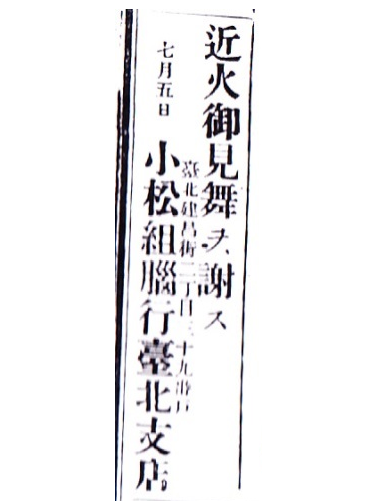 近火御見舞ヲ謝ス
七月五日
臺北建昌街二丁目三十九番戶
小松組腦行臺北支店